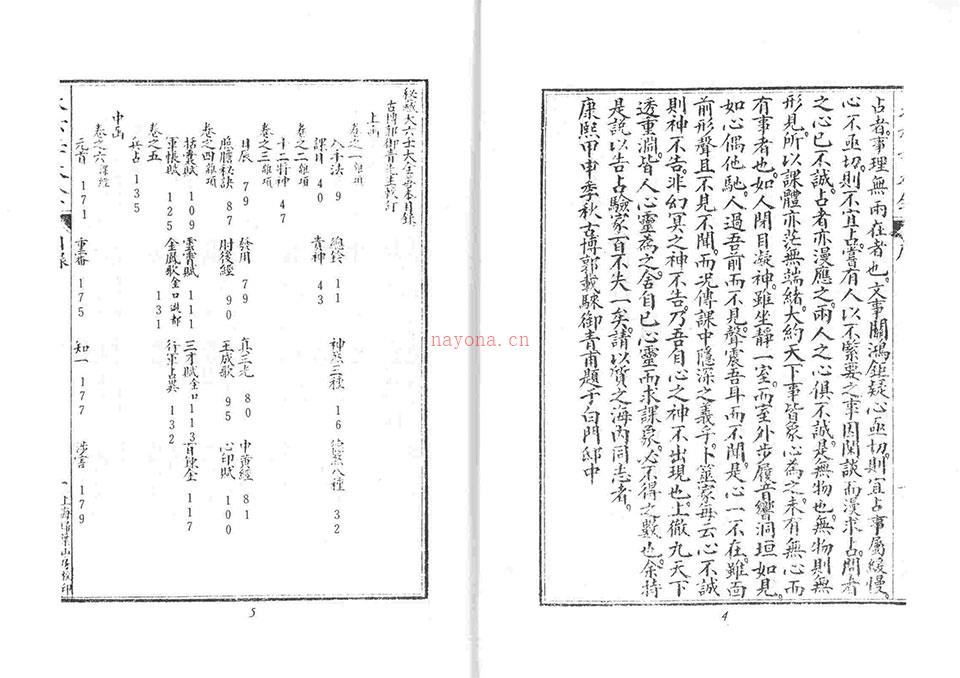 占者事理無兩在者也。文事關鴻鉅疑心亟切。則宜占。事屬緩慢。
心不亟切。則不宜占。嘗有人以不緊要之事因閑談而漫求占。問者
之心已不誠。占者亦漫應之。兩人之心俱不誠。是無物也。無物則無
形見。所以課體亦茫無端緒。大約天下事皆象心為之。未有無心而
有事者也。如人閉目凝神。雖坐靜一室。而室外步履音響洞垣如見。
如心偶他馳。人過吾前而不見。聲震吾耳而不聞。是心一不在。雖面
前形聲且不見不聞。而況傳課中隱深之義乎。卜筮家每云心不誠
則神不告。非幻冥之神不告。乃吾自心之神不出現也。上徹九天下
透重淵。皆人心靈為之。舍自己心靈而求課象。必不得之數也。余持
是說以告占驗家百不失一矣。請以質之海內同志者。
康熙甲申季秋古博郭載騋御青甫題于白門邸中
4
秘藏大六壬大全善本目錄
古博郭御青先生校訂
上函
卷之一 雜項
入手法 9
總鈐 11
神煞三種 16
總煞八種 32
課目 40
貴神 43
卷之二 雜項
十二將神 47
卷之三 雜項
日辰 79
發用 79
真三光 80
中黃經 81
照膽秘訣 87
肘後經 90
玉成歌 95
心印賦 100
卷之四 雜項
括囊賦 109
雲霄賦 111
三才賦全 113
百鍊金 117
軍帳賦 125
金鳳歌全 131
行軍占異 132
卷之五
兵占 135
中函
卷之六 課經
元首 171
重審 175
知一 177
涉害 179
nayona.cn
5